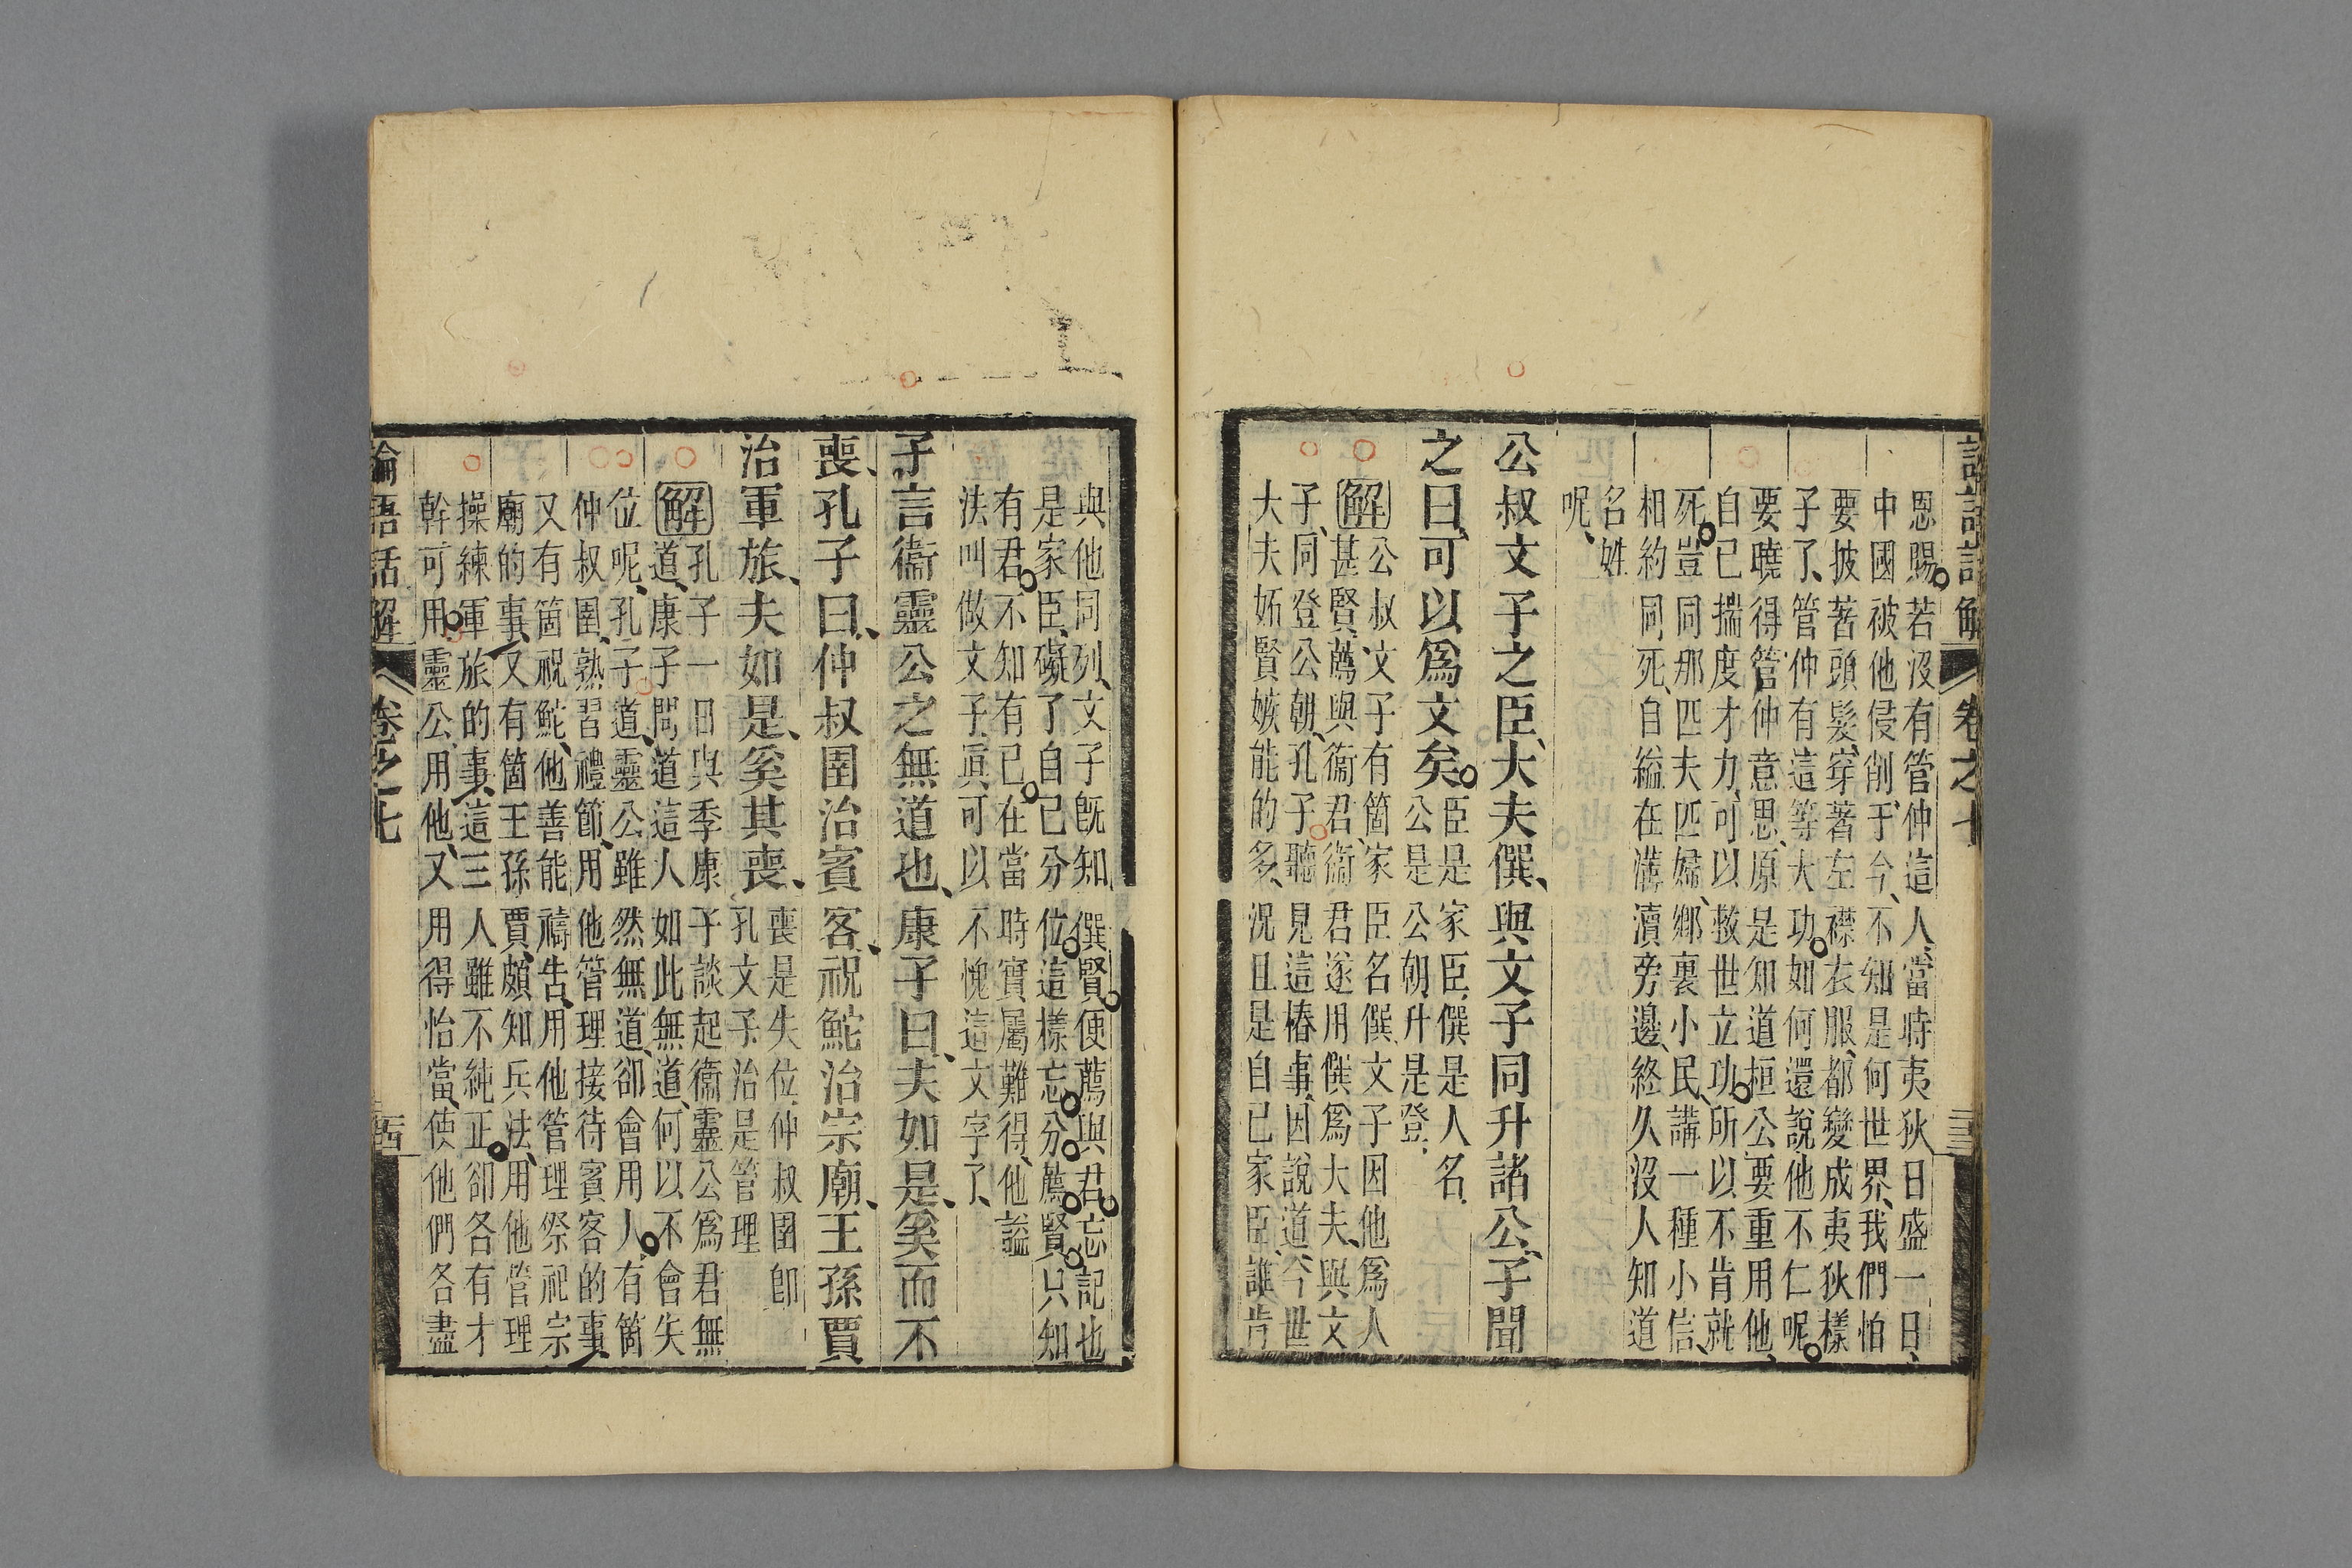 論語話解 卷之七
恩賜若沒有管仲這人當時夷狄日盛一日、
中國被他侵削、于今、不知是何世界、我們怕
要披著頭髮、穿著左襟衣服、都變成夷狄樣
子了、管仲有這等大功、如何還說他不仁呢
要曉得管仲意思、原是知道桓公要重用他、
自已揣度才力、可以救世立功、所以不肯就
死、豈同那匹夫匹婦、鄉裏小民、講一種小信、
相約同死、自縊在溝瀆旁邊、終久沒人知道
名姓
呢、
公叔文子之臣、大夫僎、與文子同升諸公、子聞
之曰、可以爲文矣
臣是家臣、僎是人名、
公是公朝、升是登、
解公叔文子有箇家臣名僎、文子因他爲人
甚賢、薦與衞君、衞君遂用僎爲大夫、與文
子、同登公朝、孔子聽見這樁事、因說道、今世
大夫妬賢嫉能的多、況且是自已家臣、誰肯
與他同列、文子旣知僎賢、便薦與君、忘記也
是家臣、礙了自已分位、這樣忘分薦賢、只知
有君、不知有已、在當時實屬難得、他謚
法叫做文子、眞可以不愧這文字了、
子言衞靈公之無道也、康子曰、夫如是、奚而不
喪、孔子曰、仲叔圉治賓客、祝鮀治宗廟、王孫賈
治軍旅、夫如是、奚其喪、
喪是失位、仲叔圉卽
孔文子、治是管理
解孔子一日與季康子談起衞靈公爲君無
道、康子問道這人如此無道、何以不會失
位呢、孔子道、靈公雖然無道、卻會用人、有箇
仲叔圉、熟習禮節、用他管理接待賓客的事、
又有箇祝鮀、他善能禱告、用他管理祭祀宗
廟的事、又有箇王孫賈、頗知兵法、用他管理
操練軍旅的事、這三人雖不純正、卻各有才
幹可用、靈公用他、又用得怡當、使他們各盡
論語話解 卷之七